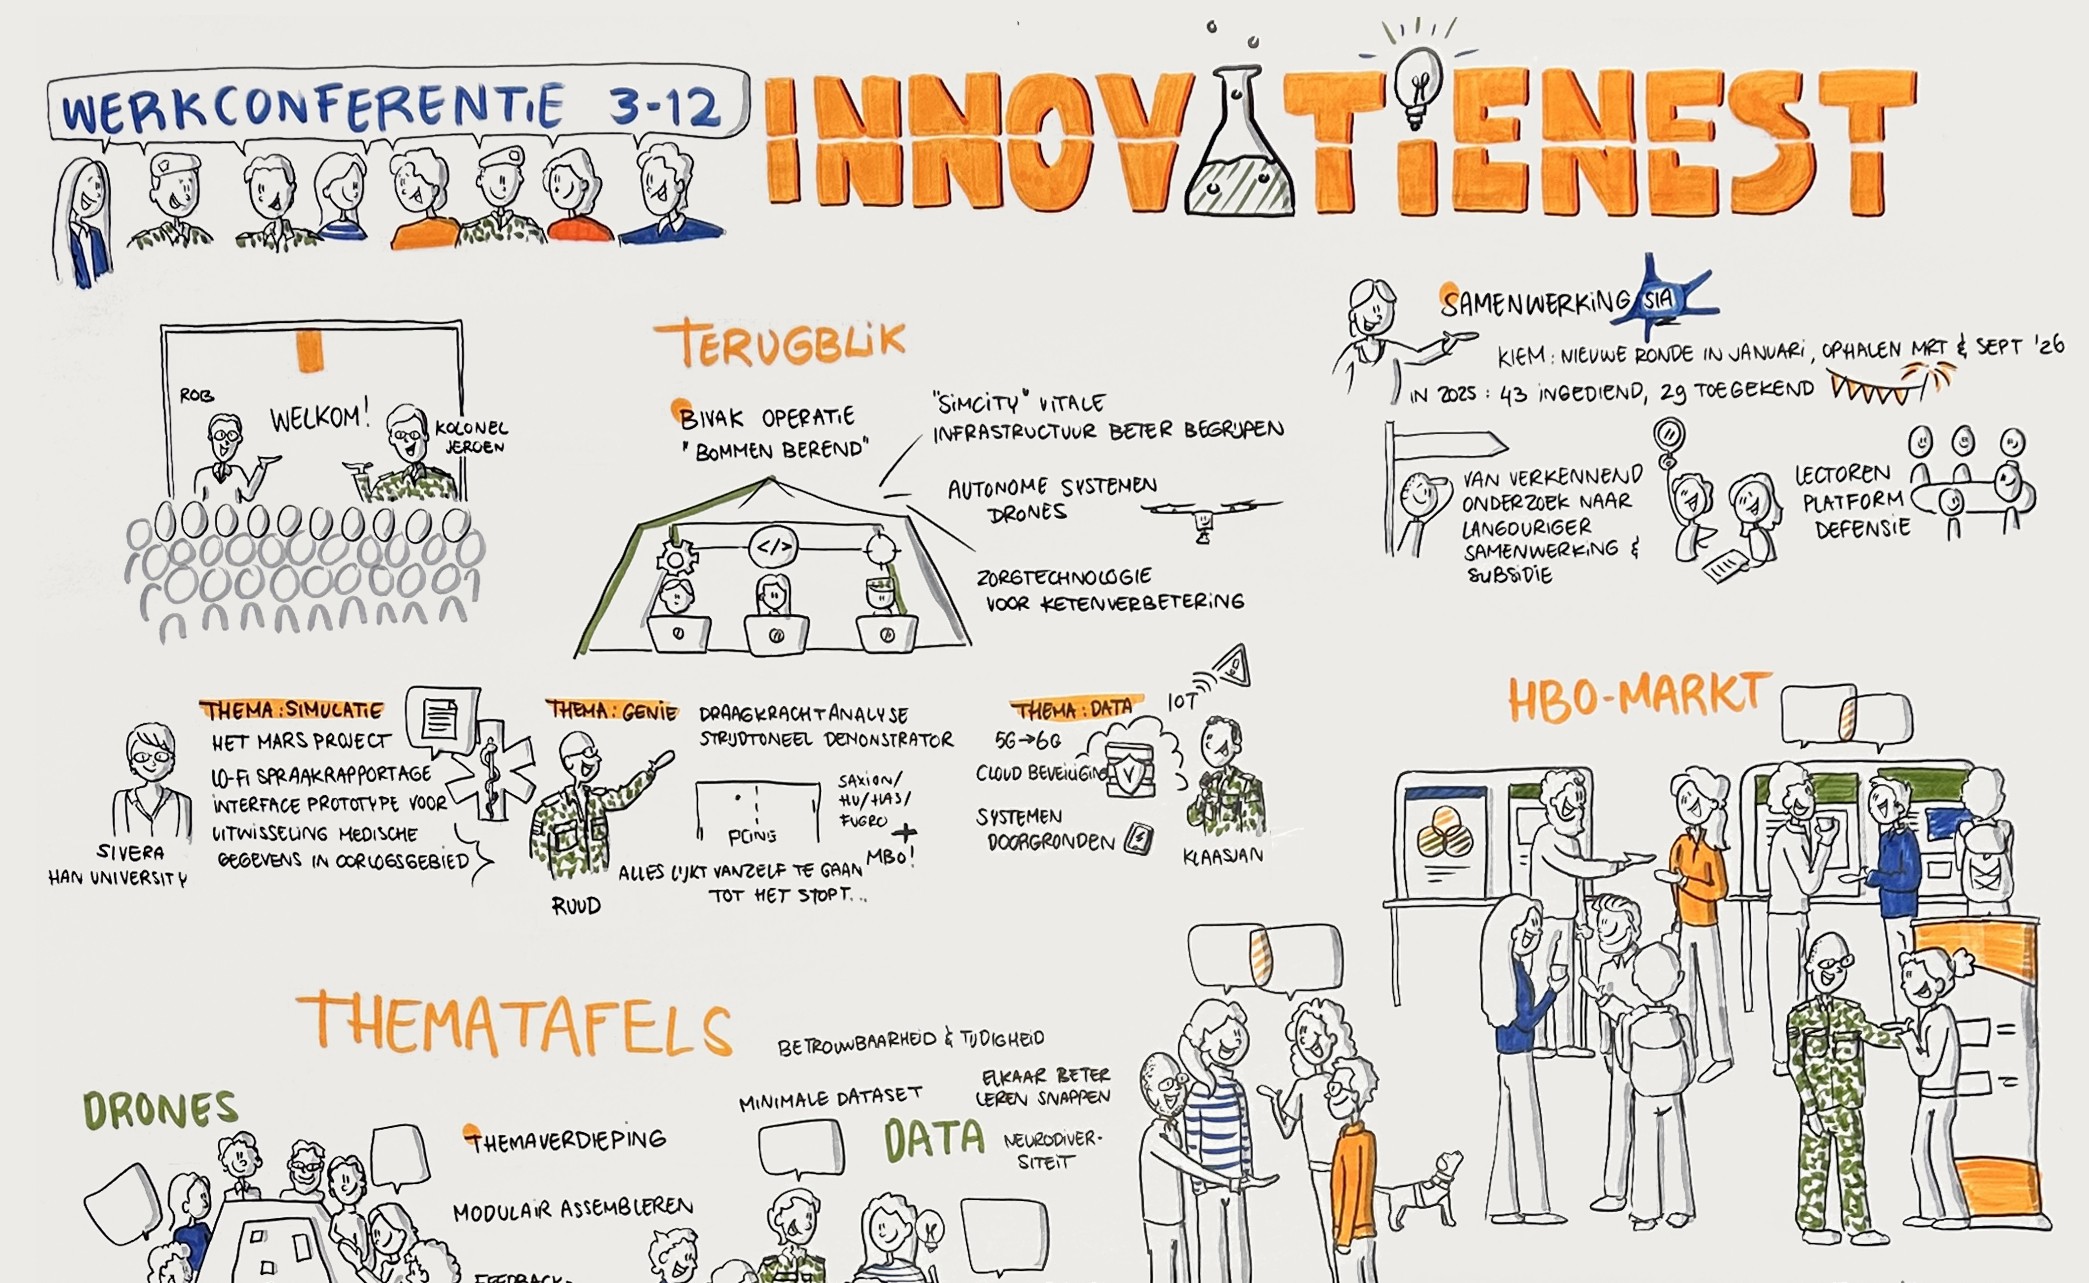 WERKCONFERENTIE 3-12
INNOVATIENEST
ROB
WELKOM!
KOLONEL
JEROEN
TERUGBLIK
BIVAK OPERATIE
"BOMMEN BEREND"
"SIMCITY" VITALE
INFRASTRUCTUUR BETER BEGRIJPEN
AUTONOME SYSTEMEN
DRONES
ZORGTECHNOLOGIE
VOOR KETENVERBETERING
</>
SAMENWERKING SIA
KIEM: NIEUWE RONDE IN JANUARI, OPHALEN MRT & SEPT '26
IN 2025: 43 INGEDIEND, 29 TOEGEKEND
VAN VERKENNEND
ONDERZOEK NAAR
LANGDURIGER
SAMENWERKING &
SUBSIDIE
LECTOREN
PLATFORM
DEFENSIE
THEMA: SIMULATIE
HET MARS PROJECT
LO-FI SPRAAKRAPPORTAGE
INTERFACE PROTOTYPE VOOR
UITWISSELING MEDISCHE
GEGEVENS IN OORLOGSGEBIED
SIVERA
HAN UNIVERSITY
THEMA: GENIE
DRAAGKRACHTANALYSE
STRIJDTONEEL DEMONSTRATOR
SAXION/
HU/HAS/
FUGRO
+
MBO!
ALLES LIJKT VANZELF TE GAAN
TOT HET STOPT...
RUUD
THEMA: DATA
IOT
5G→6G
CLOUD BEVEILIGING
SYSTEMEN
DOORGRONDEN
KLAASJAN
HBO-MARKT
THEMATAFELS
DRONES
THEMAVERDIEPING
MODULAIR ASSEMBLEREN
FEEDBACK-
BETROUWBAARHEID & TIJDIGHEID
MINIMALE DATASET
ELKAAR BETER
LEREN SNAPPEN
DATA
NEURODIVER-
SITEIT